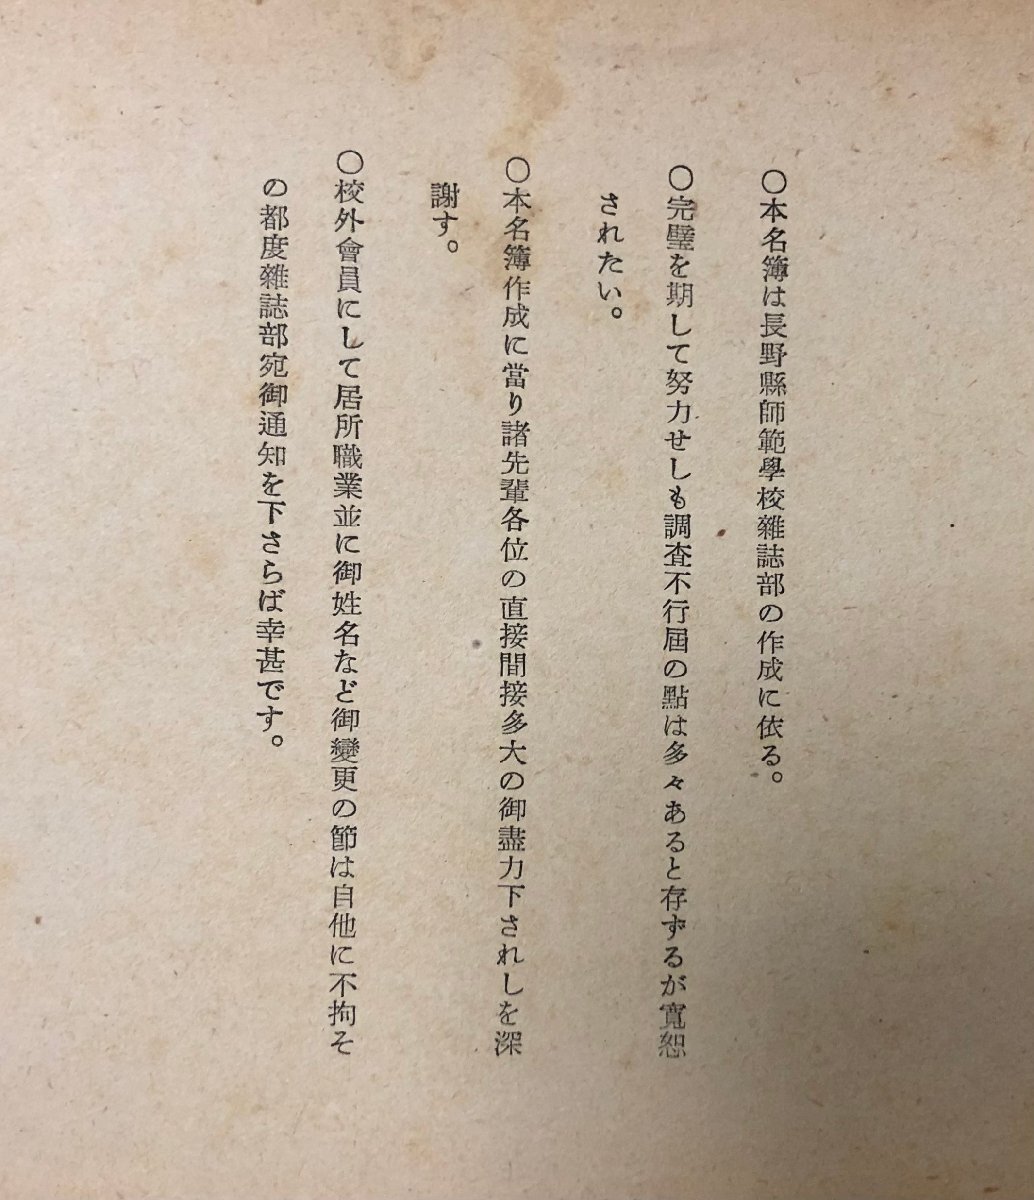 ○本名簿は長野縣師範學校雜誌部の作成に依る。
○完璧を期して努力せしも調査不行屆の點は多々あると存ずるが寛恕
されたい。
○本名簿作成に當り諸先輩各位の直接間接多大の御盡力下されしを深
謝す。
○校外會員にして居所職業並に御姓名など御變更の節は自他に不拘そ
の都度雜誌部宛御通知を下さらば幸甚です。